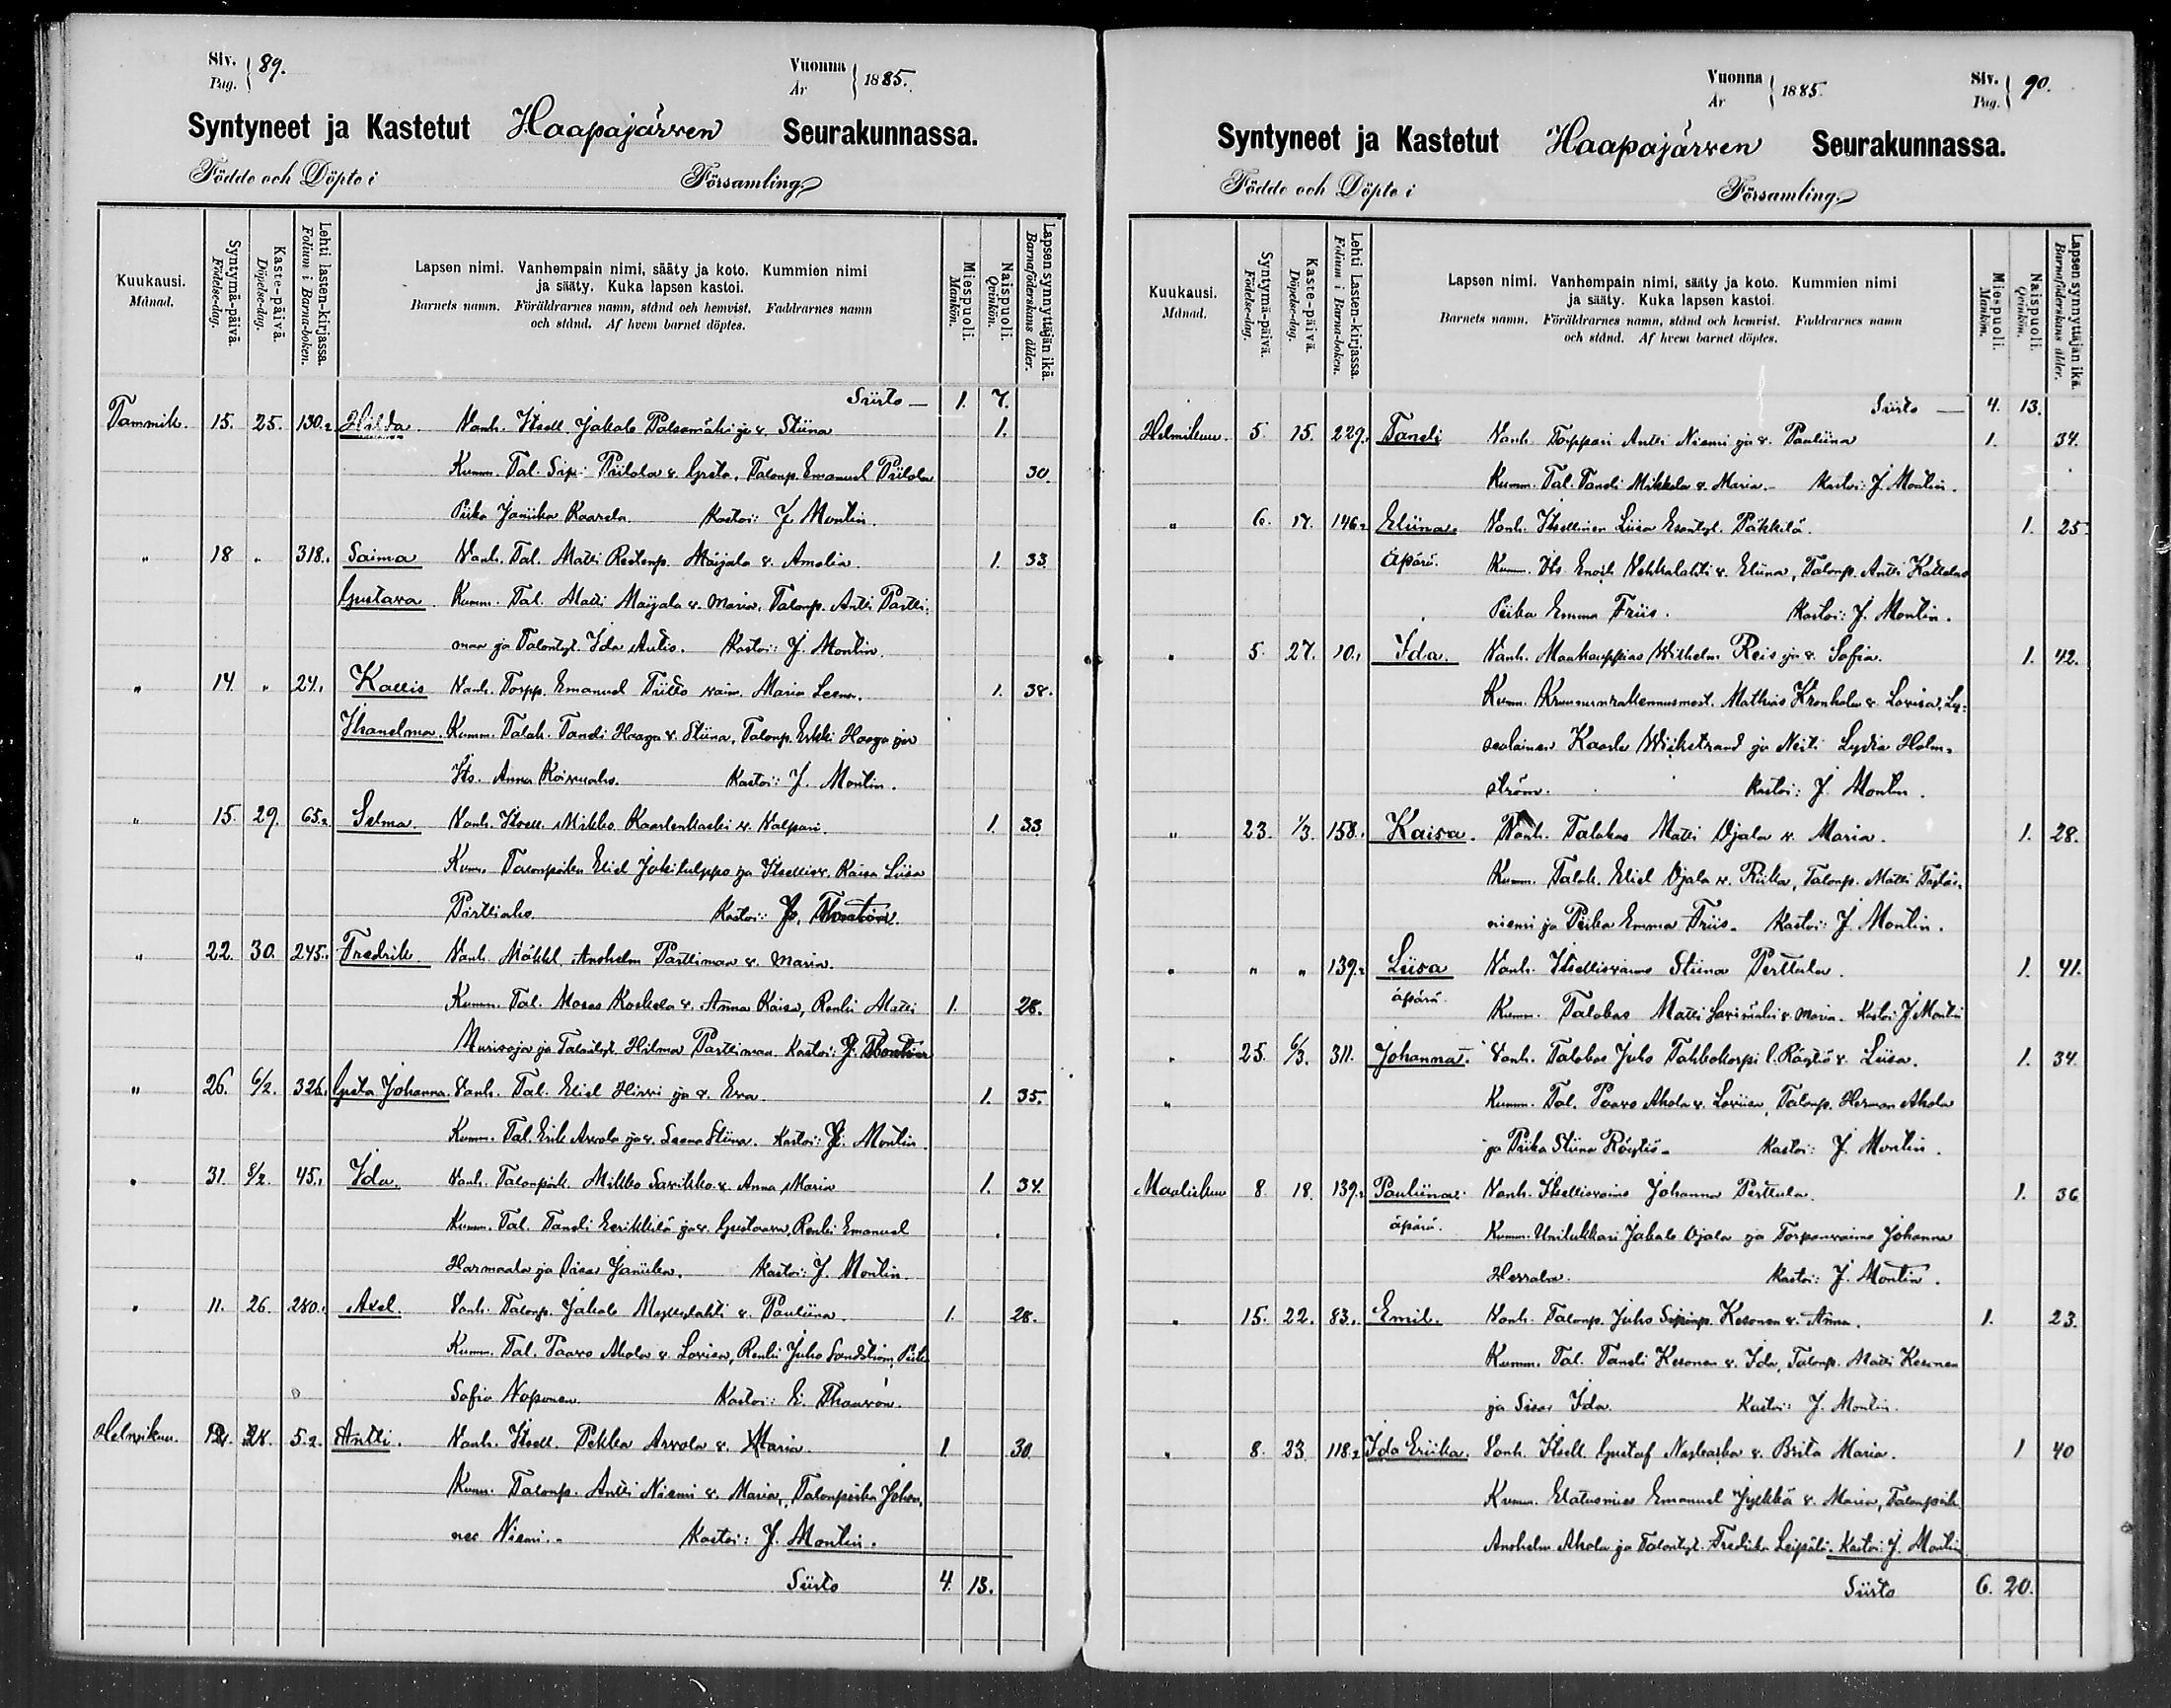 Siv. Pag. } 89.
Vuonna År } 1885.
Syntyneet ja Kastetut Haapajärwen Seurakunnassa.
Födde och Döpte i Församling.
Kuukausi. Månad.
Syntymä-päivä. Födelse-dag.
Kaste-päivä. Döpelse-dag.
Lehti lasten-kirjassa. Folium i Barna-boken.
Lapsen nimi. Vanhempain nimi, sääty ja koto. Kummien nimi
ja sääty. Kuka lapsen kastoi.
Barnets namn. Föräldrarnes namn, stånd och hemvist. Faddrarnes namn
och stånd. Af hvem barnet döptes.
Miespuoli. Mankön.
Naispuoli. Qvinkön.
Lapsen synnyttäjän ikä. Barnaföderskans ålder.
Siirto — 1. 7.
Tammik. 15. 25. 130.2 Hilda. Vanh. Itsell. Jakob Palosmäki ja v. Stiina 1.
Kumm. Tal. Sip. Piilola v. Greta, Talonp. Emanuel Piilola 30.
Piika Kaarela. Kastoi: J. Montin.
" 18 " 318.1 Saima Vanh. Tal. Matti Maijala v. Amalia. 1. 33.
Gustava Kumm. Tal. Matti Maijala v. Maria, Talonp. Antti Partti-
maa ja Talontyt. Ida Autio. Kastoi: J. Montin.
" 14 " 24.1 Vanh. Torpp. Emanuel Tiitto vaim. Maria Leena. 1. 38.
Kumm. Talok. Taneli Haaga v. Stiina, Talonp. Erkki Haaga ja
Its. Anna Koivuaho. Kastoi: J. Montin.
" 15. 29. 65.2 Selma. Vanh. Itsell. Mikko v. Valpuri. 1. 33
Kumm. Talonpoika Eliel Jokikulppo ja Kaisa Liisa
Pirttiaho. Kastoi:
" 22. 30. 245. Fredrik Vanh. Mökkl. Anshelm Parttimaa v. Maria.
Kumm. Tal. Moses Koskela v. Anna Kaisa, Renki Matti 1. 28.
Murisoja ja Talontyt. Hilma Parttimaa Kastoi:
" 26. 6/2. 326.1 Greta Johanna. Vanh. Tal. Eliel Hirvi ja v. Eva 1. 35.
Kumm. Tal. Erik Arvola ja v. Leena Stiina. Kastoi: J. Montin.
" 31. 8/2. 45.1 Ida. Vanh. Talonpoik. Mikko Savikko v. Anna Maria 1. 34.
Kumm. Tal. Taneli Eerikkilä ja v. Gustaava, Renki Emanuel
Harmaala ja Kastoi: J. Montin.
" 11. 26. 280.1 Axel. Vanh. Talonp. Jakob Myllylahti v. Pauliina. 1. 28.
Kumm. Tal. Paavo Ahola v. Lovisa, Renki Juho Sandström, Piika
Sofia Noponen. Kastoi: E. Thauvón.
Helmikuu. 5.2. Antti. Vanh. Itsell. Pekka Arvola v. Maria. 1. 30.
Kumm. Talonp. Antti Niemi v. Maria, Talonpoika Johan-
nes Niemi. Kastoi: J. Montin.
Siirto 4. 13.
Vuonna År } 1885.
Siv. Pag. } 90.
Syntyneet ja Kastetut Haapajärwen Seurakunnassa.
Födde och Döpte i Församling.
Kuukausi. Månad.
Syntymä-päivä. Födelse-dag.
Kaste-päivä. Döpelse-dag.
Lehti Lasten-kirjassa. Folium i Barna-boken.
Lapsen nimi. Vanhempain nimi, sääty ja koto. Kummien nimi
ja sääty. Kuka lapsen kastoi.
Barnets namn. Föräldrarnes namn, stånd och hemvist. Faddrarnes namn
och stånd. Af hvem barnet döptes.
Miespuoli. Mankön.
Naispuoli. Qvinkön.
Lapsen synnyttäjän ikä. Barnaföderskans ålder.
Siirto — 4. 13.
Helmikuu. 5. 15. 229.1 Taneli Vanh. Torppari Antti Niemi ja v. Pauliina 1. 34.
Kumm. Tal. Taneli Mikkola v. Maria. Kastoi: J. Montin.
" 6. 17. 146.2 Eliina. Vanh. Itsellinen Liisa Pökkilä. 1. 25.
äpärä. Kumm. Its. Enoch Vehkalahti v. Eliina, Talonp. Antti
Piika Emma Friis. Kastoi: J. Montin.
" 5. 27. 10.1 Ida. Vanh. Maakauppias Wilhelm Reis ja v. Sofia. 1. 42.
Kumm. Kruununrakennusmest. Mathias Kronholm v. Lovisa, Ly-
sealainen Kaarlo Wickstrand ja Neiti Lydia Holm-
ström. Kastoi: J. Montin.
" 23. 1/3. 158.1 Kaisa. Vanh. Talokas Matti Ojala v. Maria. 1. 28.
Kumm. Talok. Eliel Ojala v. Riika, Talonp. Matti
niemi ja Piika Emma Friis. Kastoi: J. Montin.
" " " 139.2 Liisa Vanh. Itsellisvaimo Stiina Perttula. 1. 41.
äpärä. Kumm. Talokas Matti Savimäki v. Maria. Kastoi: J. Montin
" 25. 6/3. 311. Johanna. Vanh. Talokas Juho Tahkokorpi l. Räytiö v. Liisa. 1. 34.
" Kumm. Tal. Paavo Ahola v. Loviisa, Talonp. Herman Ahola
ja Piika Stiina Röytiö. Kastoi: J. Montin.
Maaliskuu 8. 18. 139.2 Pauliina. Vanh. Itsellisvaimo Johanna Perttula. 1. 36
äpärä. Kumm. Unilukkari Jakob Ojala ja Torpanvaimo Johanna
Herrala. Kastoi: J. Montin.
" 15. 22. 83.1 Emil. Vanh. Talonp. Juho Sipinp. Kesonen v. Anna. 1. 23.
Kumm. Tal. Taneli Kesonen v. Ida, Talonp. Matti Kesonen
ja Sisar Ida. Kastoi: J. Montin.
" 8. 23. 118.2 Ida Eriika. Vanh. Itsell. Gustaf v. Brita Maria. 1 40
Kumm. Elatusmies Emanuel Jylkkä v. Maria, Talonpoik.
Anshelm Ahola ja Talontyt. Fredrika Leipälä. Kastoi: J. Montin
Siirto 6. 20.